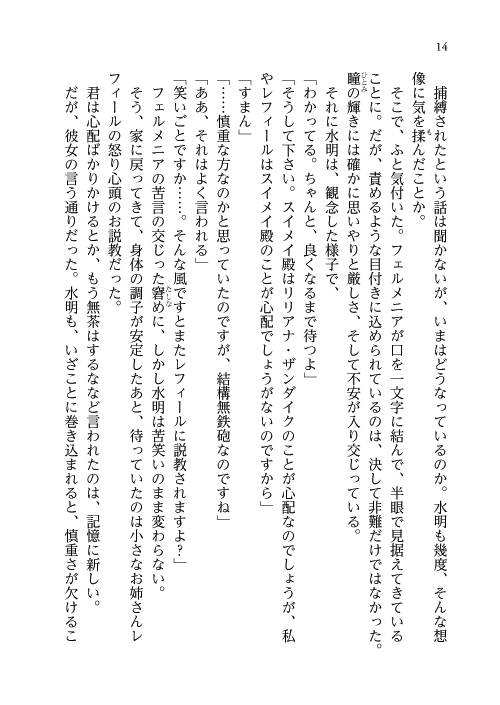 14
捕縛されたという話は聞かないが、いまはどうなっているのか。水明も幾度、そんな想
像に気を揉んだことか。
そこで、ふと気付いた。フェルメニアが口を一文字に結んで、半眼で見据えてきている
ことに。だが、責めるような目付きに込められているのは、決して非難だけではなかった。
瞳の輝きには確かに思いやりと厳しさ、そして不安が入り交じっている。
それに水明は、観念した様子で、
「わかってる。ちゃんと、良くなるまで待つよ」
「そうして下さい。スイメイ殿はリリアナ・ザンダイクのことが心配なのでしょうが、私
やレフィールはスイメイ殿のことが心配でしょうがないのですから」
「すまん」
「……慎重な方なのかと思っていたのですが、結構無鉄砲なのですね」
「ああ、それはよく言われる」
「笑いごとですか……。そんな風ですとまたレフィールに説教されますよ？」
フェルメニアの苦言の交じった窘めに、しかし水明は苦笑いのまま変わらない。
そう、家に戻ってきて、身体の調子が安定したあと、待っていたのは小さなお姉さんレ
フィールの怒り心頭のお説教だった。
君は心配ばかりかけるとか、もう無茶はするななど言われたのは、記憶に新しい。
だが、彼女の言う通りだった。水明も、いざことに巻き込まれると、慎重さが欠けるこ